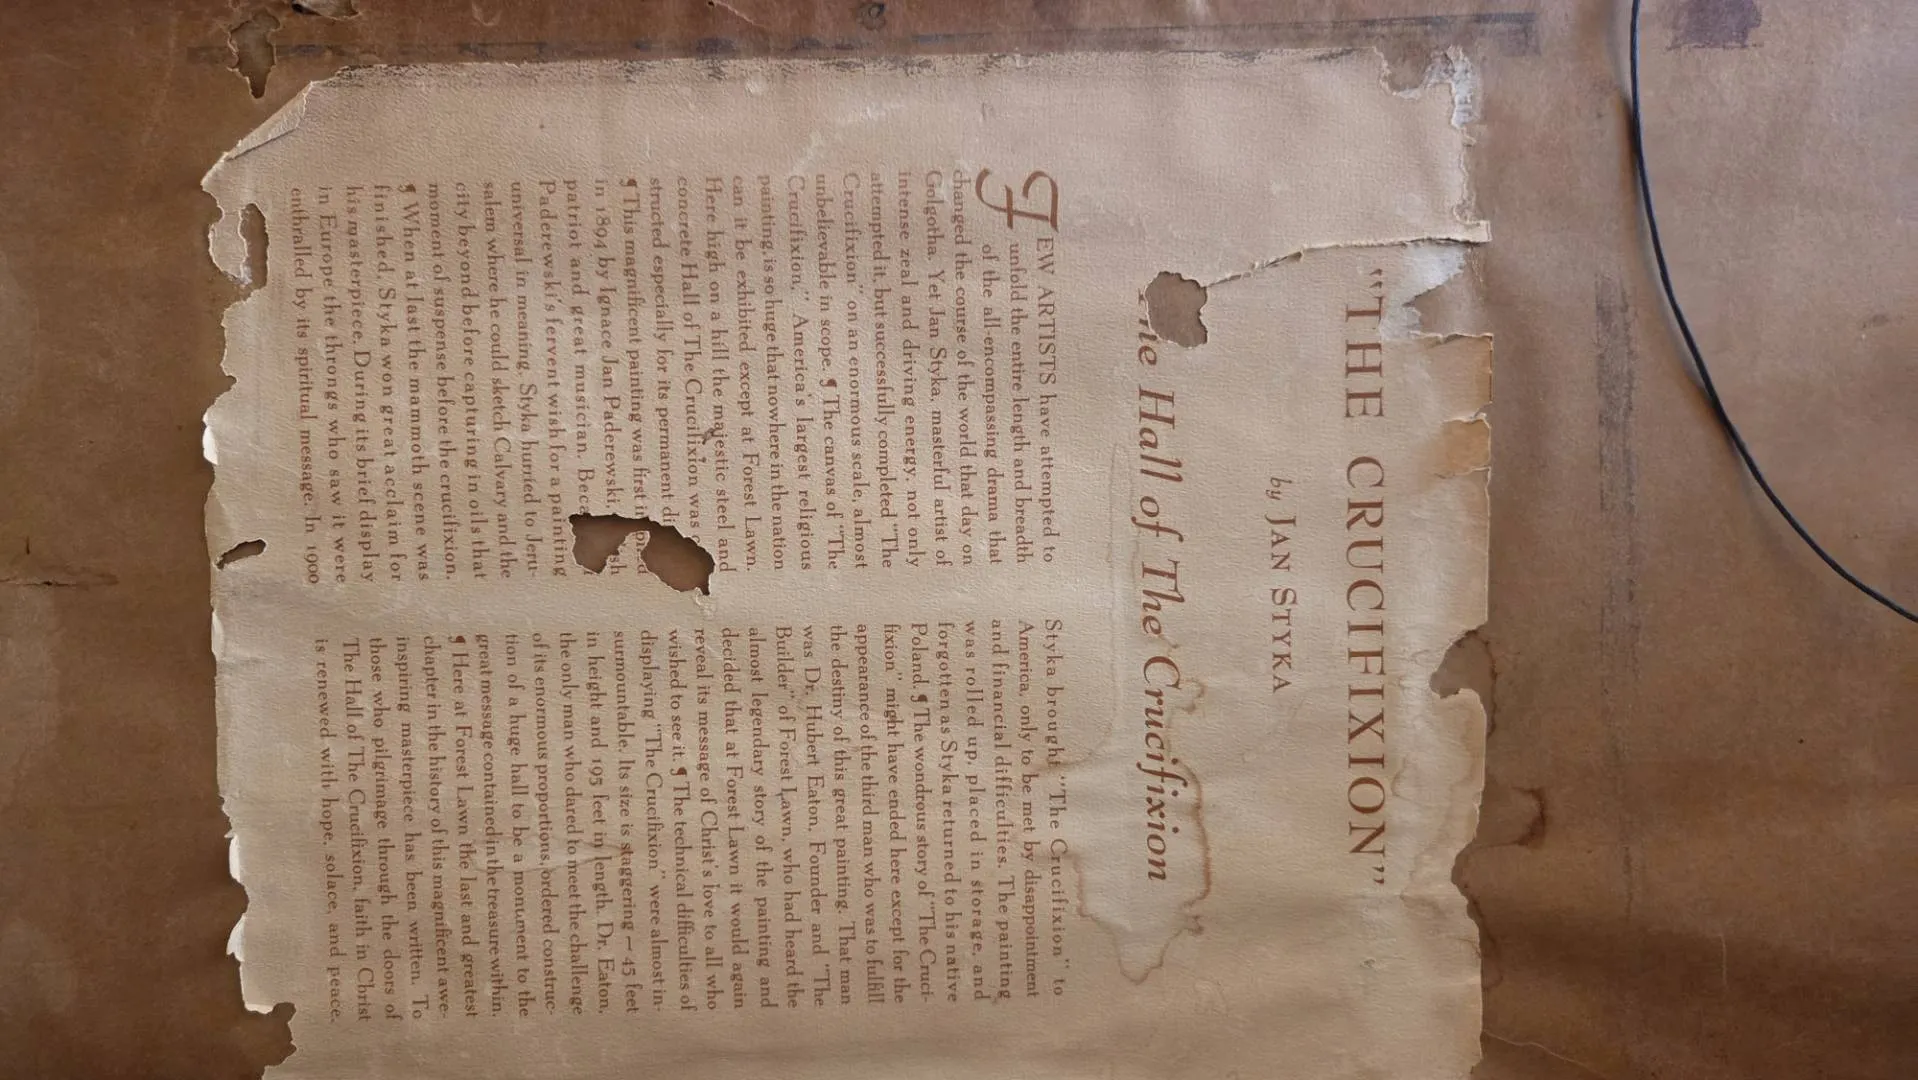 "THE CRUCIFIXION"
by JAN STYKA
he Hall of The Crucifixion
FEW ARTISTS have attempted to
unfold the entire length and breadth
of the all-encompassing drama that
changed the course of the world that day on
Golgotha. Yet Jan Styka, masterful artist of
intense zeal and driving energy, not only
attempted it, but successfully completed "The
Crucifixion" on an enormous scale, almost
unbelievable in scope. ¶ The canvas of "The
Crucifixion," America's largest religious
painting, is so huge that nowhere in the nation
can it be exhibited except at Forest Lawn.
Here high on a hill the majestic steel and
concrete Hall of The Crucifixion was
structed especially for its permanent
¶ This magnificent painting was first
in 1894 by Ignace Jan Paderewski,
patriot and great musician.
Paderewski's fervent wish for a painting
universal in meaning, Styka hurried to Jeru-
salem where he could sketch Calvary and the
city beyond before capturing in oils that
moment of suspense before the crucifixion.
¶ When at last the mammoth scene was
finished, Styka won great acclaim for
his masterpiece. During its brief display
in Europe the throngs who saw it were
enthralled by its spiritual message. In 1900
Styka brought "The Crucifixion" to
America, only to be met by disappointment
and financial difficulties. The painting
was rolled up, placed in storage, and
forgotten as Styka returned to his native
Poland. ¶ The wondrous story of "The Cruci-
fixion" might have ended here except for the
appearance of the third man who was to fulfill
the destiny of this great painting. That man
was Dr. Hubert Eaton, Founder and "The
Builder" of Forest Lawn, who had heard the
almost legendary story of the painting and
decided that at Forest Lawn it would again
reveal its message of Christ's love to all who
wished to see it. ¶ The technical difficulties of
displaying "The Crucifixion" were almost in-
surmountable. Its size is staggering—45 feet
in height and 195 feet in length. Dr. Eaton,
the only man who dared to meet the challenge
of its enormous proportions, ordered construc-
tion of a huge hall to be a monument to the
great message contained in the treasure within.
¶ Here at Forest Lawn the last and greatest
chapter in the history of this magnificent awe-
inspiring masterpiece has been written. To
those who pilgrimage through the doors of
The Hall of The Crucifixion, faith in Christ
is renewed with hope, solace, and peace.